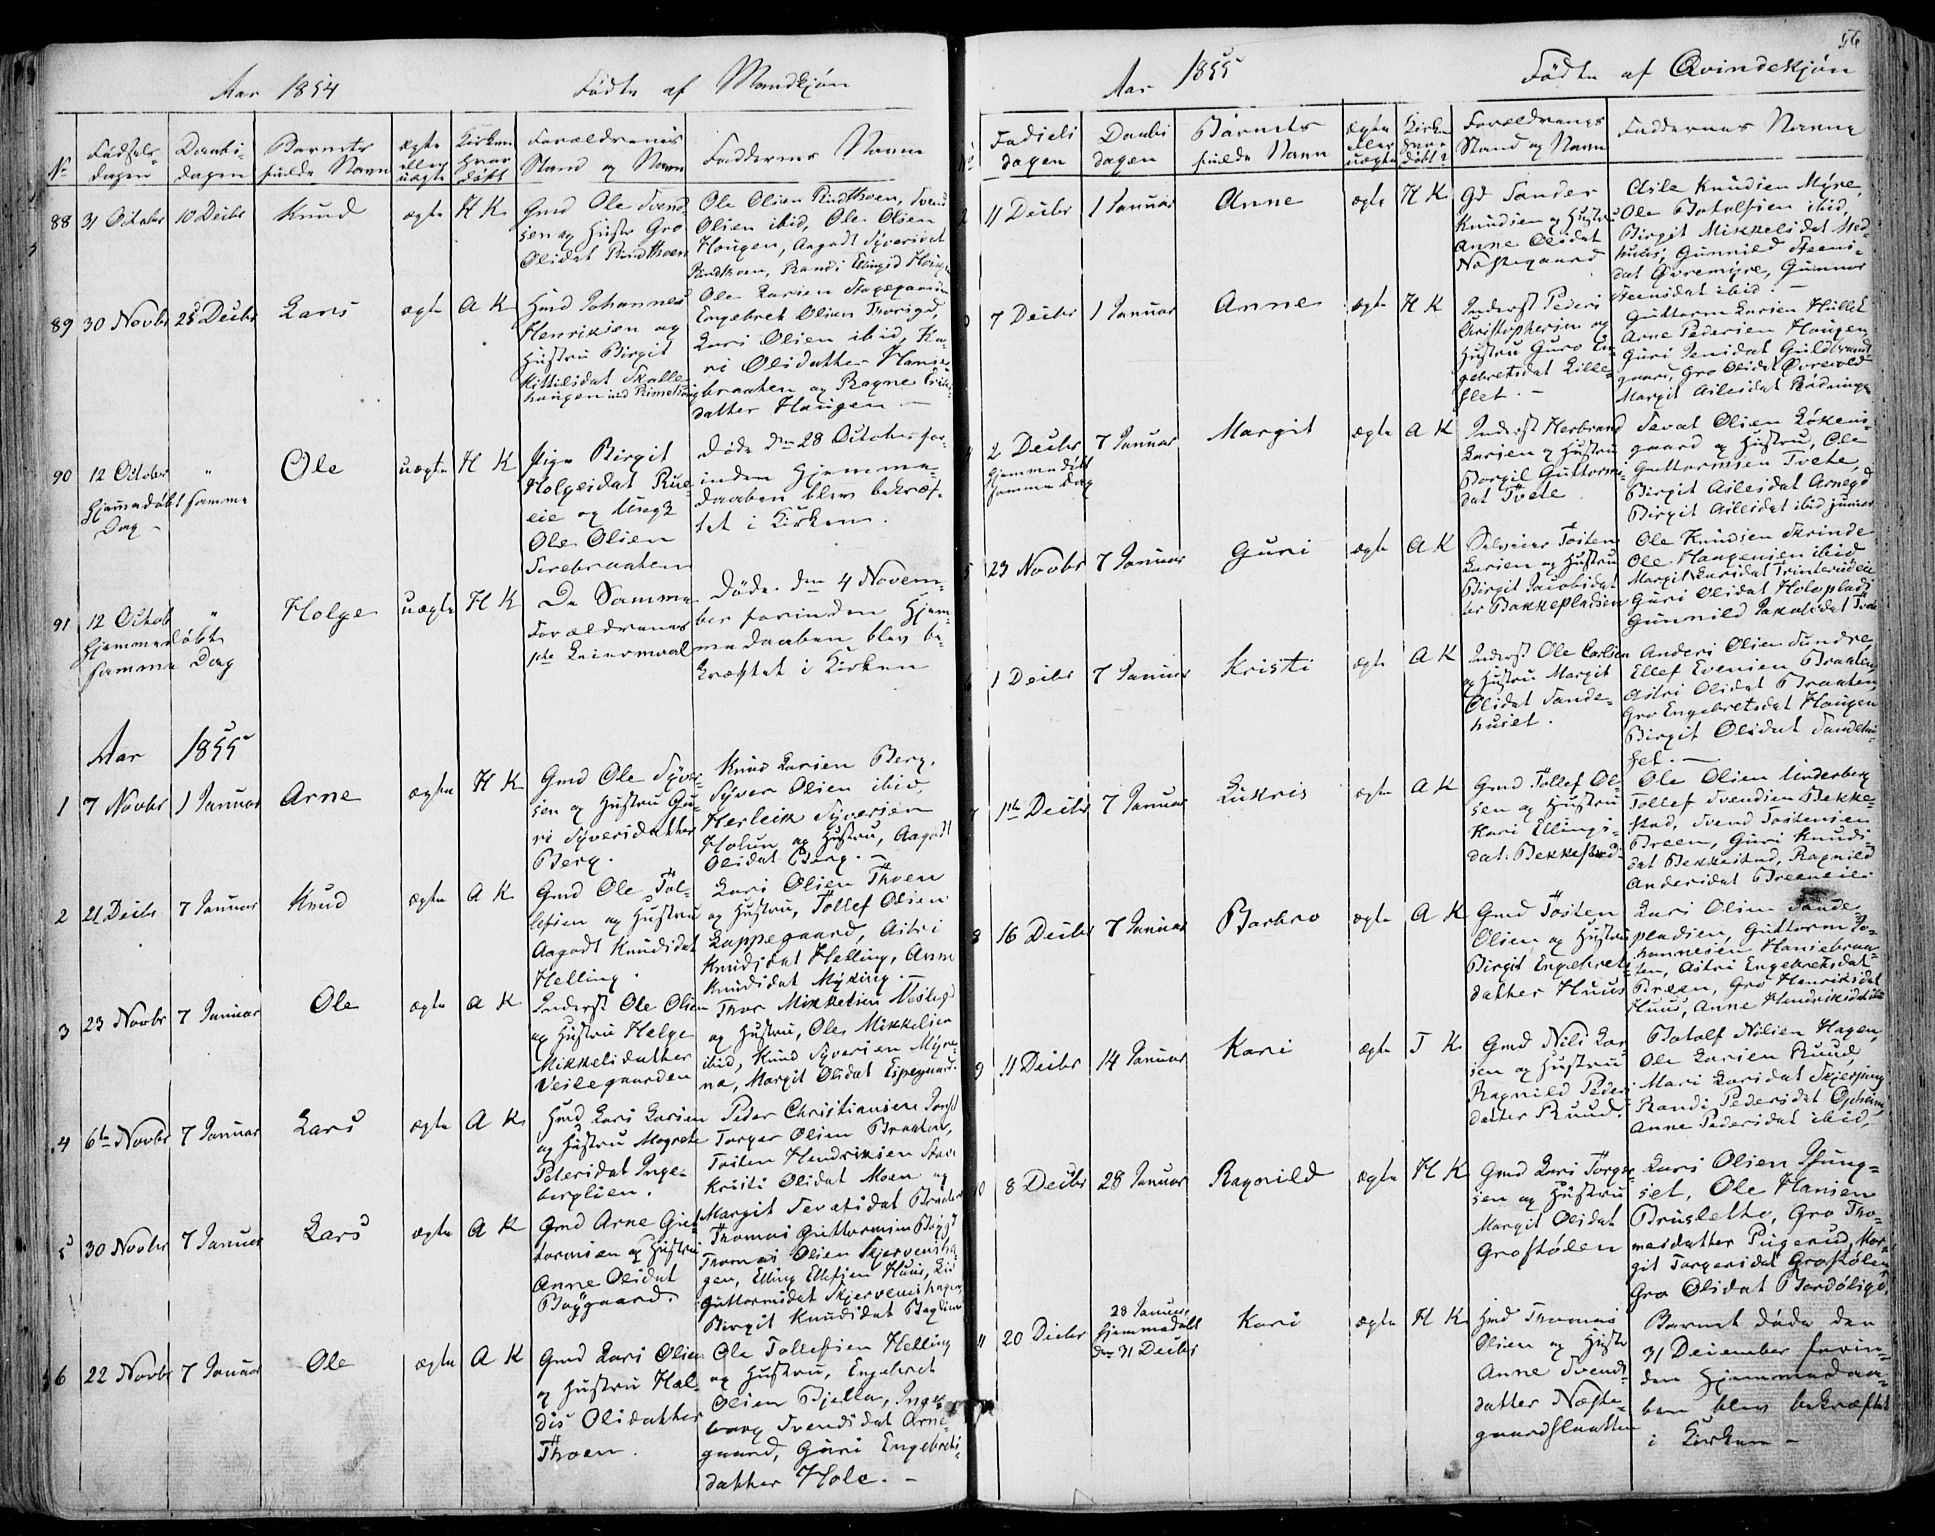 Aar 1854 Födte af Mandkjøn
No Födsels-dagen Daabs-dagen Barnets fulde Navn ægte eller uægte Kirken hvor döbt Forældrenes Stand og Navn Faddernes Navne
88 31 October 10 Decbr Knud ægte H K Gmd Ole Svend-
sen og Hustr Gro
Olsdat Rindthoen
Ole Olsen Rindthoen, Svend
Olsen ibid, Ole Olsen
Haugen, Aagodt Syversdat
Rindthoen, Randi Ellingsd Haugen
89 30 Novbr 25 Decbr Lars ægte A K Hmd Johannes
Henriksen og
Hustru Birgit
Kittilsdat Skalle-
haugen
Ole Larsen
Engebret Olsen Thorsgd,
Lars Olsen ibid, Ka-
ri Olsdatter Hanse-
braaten og Ragne
datter Haugen –
90 12 October
Hjemmedöbt samme
Dag –
" Ole uægte H K Pige Birgit
Holgesdat Rue-
eie og Ungk
Ole Olsen
Sirebraaten
Döde den 28 October for-
inden Hjemme-
daaben blev bekræf-
tet i Kirken.
91 12 Octob
Hjemmedöbt
samme Dag
" Holge uægte H K De Samme
Forældrenes
1ste Leiermaal
Döde den 4 Novem-
ber forinden Hjem-
medaaben blev be-
kræftet i Kirken
Aar 1855
1 7 Novbr 1 Januar Arne ægte H K Gmd Ole Syver-
sen og Hustru Gu-
ri Syversdatter
Berg.
Knud Larsen Berg,
Syver Olsen ibid,
Herleik Syversen
Holun og Hustru, Aagodt
Olsdat Berg. –
2 21 Decbr 7 Januar Knud ægte A K Gmd Ole Tol-
lefsen og Hustru
Aagodt Knudsdat
Helling.
Lars Olsen Thoen
og Hustru, Tollef Olsen
Lappegaard, Astri
Knudsdat Helling, Anne
Knudsdat Myking. –
3 23 Novbr 7 Januar Ole ægte A K Inderst Ole Olsen
og Hustru Helge
Mikkelsdatter
Veslegaarden
Thor Mikkelsen Neslegd
og Hustru, Ole Mikkelsen
ibid, Knud Syversen Myre-
ne, Margit Olsdat Espegaard.
4 6te Novbr 7 Januar Lars ægte A K Hmd Lars Larsen
og Hustru Magrete
Pedersdat Inge-
berglien.
Peder Christiansen
Torger Olsen Braaten,
Tosten Hendriksen
Kristi Olsdat Moen og
Margit Sevatsdat
5 30 Novbr 7 Januar Lars ægte A K Gmd Arne Gut-
tormsen og Hustru
Anne Olsdat
Böygaard.
Thomas Guttormsen Böygd
Thomas Olsen Skjervensha-
gen, Elling Ellefsen Huus,
Guttormsdat Skjervenshagen
Birgit Knudsdat
6 22 Novbr 7 Januar Ole ægte A K Gmd Lars Olsen
og Hustru Hal-
dis Olsdatter
Thoen.
Ole Tollefsen Helling
og Hustru, Engebret
Olsen Bjella, Inge-
borg Svendsdat Arne-
gaard, Guri Engebrets-
datter Hole. –
56
Aar 1855 Födte af Qvindekjön
No Födsels dagen Daabs dagen Barnets fulde Navn ægte eller uægte Kirke hvor döbt? Forældrenes Stand og Navn Faddernes Navne
2 11 Decbr 1 Januar Anne ægte H K Gd Sander
Knudsen og Hustru
Anne Olsdat
Nestegaard
Asle Knudsen Myre,
Ole Botolfsen ibid,
Birgit Mikkelsdat Med-
huus, Gunnild Steens-
dat Övremyre, Gunnor
Steensdat ibid. –
3 7 Decbr 1 Januar Anne ægte H K Inderst Peder
Christophersen og
Hustru Guro En-
gebretsdat Lille-
slet. –
Guttorm Larsen
Arne Pedersen Haugen
Guri Jensdat Guldbrands-
gaard, Gro Olsdat Övrevold
Margit Aslesdat Rödningen
4 2 Decbr
hjemmedöbt
samme Dag
7 Januar Margit ægte A K Inderst Herbrand
Larsen og Hustru
Borgil Guttorms-
dat Tvete
Sevat Olsen Lökens-
gaard og Hustru, Ole
Guttormsen Tvete,
Birgit Aslesdat Arnegd
Birgit Aslesdat ibid junior
5 23 Novbr 7 Januar Guri ægte A K Selveier Tosten
Larsen og Hustru
Birgit Jacobsdat
Bakkepladsen
Ole Knudsen Skrinde
Ole Haagensen ibid
Margit Larsdat
Guri Olsdat Holsplads
Gunnild Jakobsdat
6 1 Decbr 7 Januar Kristi ægte A K Inderst Ole Carlsen
og Hustru Margit
Olsdat Sande-
huset.
Anders Olsen Sundre,
Ellef Evensen Braaten
Astri Olsdat Braaten,
Gro Engebretsdat Haugen
Birgit Olsdat Sandehu-
set. –
7 1ste Decbr 7 Januar Lukris ægte A K Gmd Tollef Ol-
sen og Hustru
Kari Ellings-
dat. Bekkestad
Ole Olsen Underberg
Tollef Svendsen Bekke-
stad, Svend Tostensen
Breen, Guri Knuds-
dat Bekkestad, Ragnild
Andersdat Breeneie.
8 16 Decbr 7 Januar Barbro ægte A K Gmd Tosten
Olsen og Hustru
Birgit Engebrets-
datter Huus
Lars Olsen Sande-
pladsen, Guttorm Jo-
hannesen Hansebraa-
ten, Astri Engebretsdat
Breen, Gro Henriksdat
Huus, Anne Hendriksdat ibid
9 11 Decbr 14 Januar Kari ægte T K Gmd Nils Lar-
sen og Hustru
Ragnild Peders-
datter Ruud.
Botolf Nilsen Hagen,
Ole Larsen Ruud,
Mari Larsdat
Randi Pedersdat Opheim,
Anne Pedersdat ibid,
10 8 Decbr 28 Januar Ragnild ægte H K Gmd Lars Torger-
sen og Hustru
Margit Olsdat
Groslølen
Lars Olsen
set, Ole Hansen
Brusletto, Gro Tho-
mesdatter Pugerud, Mar-
git Torgersdat Grostølen,
Gro Olsdat Bordöligd.
11 20 Decbr 28 Januar,
hjemmedöbt
den 31 Decbr
Kari ægte H K Hmd Thomas
Olsen og Hustr
Anne Svends-
datter Neste-
gaardslaatten
Barnet döde den
31 December forin-
den Hjemmedaa-
ben blev bekræftet
i Kirken –